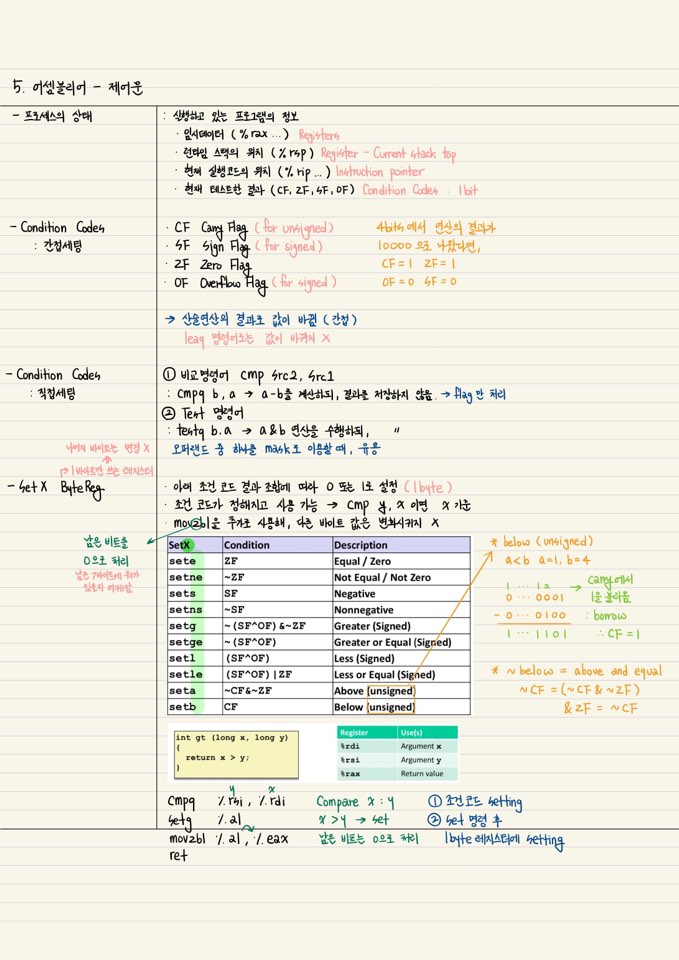 5. 어셈블리어 - 제어문
- 프로세스의 상태
: 실행하고 있는 프로그램의 정보
· 임시데이터 (%rax ...) Registers
· 런타임 스택의 위치 (%rsp) Register - Current stack top
· 현재 실행코드의 위치 (%rip ...) Instruction pointer
· 현재 테스트한 결과 (CF, ZF, SF, OF) Condition Codes : 1bit
- Condition Codes
: 간접세팅
· CF Carry Flag (for unsigned)
· SF Sign Flag (for signed)
· ZF Zero Flag
· OF Overflow Flag (for signed)
4bits에서 연산의 결과가
10000 으로 나왔다면,
CF=1 ZF=1
OF=0 SF=0
→ 산술연산의 결과로 값이 바뀜 (간접)
leaq 명령어로는 값이 바뀌지 X
- Condition Codes
: 직접세팅
① 비교명령어 cmp src2, src1
: cmpq b, a → a-b를 계산하되, 결과를 저장하지 않음. → flag만 처리
② Test 명령어
: testq b.a → a&b 연산을 수행하되, 〃
오퍼랜드 중 하나를 mask로 이용할 때, 유용
나머지 바이트는 변경 X
1바이트만 쓰는 레지스터
- Set X ByteReg
· 아래 조건 코드 결과 조합에 따라 0 또는 1로 설정 (1byte)
· 조건 코드가 정해지고 사용 가능 → cmp y, x 이면 x 기준
· movzbl을 추가로 사용해, 다른 바이트 값은 변화시키지 X
남은 비트를
0으로 처리
남은 7바이트에 뭐가
있을지 모르니까
SetX Condition Description
sete ZF Equal / Zero
setne ~ZF Not Equal / Not Zero
sets SF Negative
setns ~SF Nonnegative
setg ~(SF^OF)&~ZF Greater (Signed)
setge ~(SF^OF) Greater or Equal (Signed)
setl (SF^OF) Less (Signed)
setle (SF^OF)|ZF Less or Equal (Signed)
seta ~CF&~ZF Above (unsigned)
setb CF Below (unsigned)
* below (unsigned)
a<b a=1, b=4
1 ··· 12
0 ··· 0001
- 0 ··· 0100
1 ··· 1101
→ carry에서
1을 빌려옴
: borrow
∴ CF=1
* ~below = above and equal
~CF = (~CF & ~ZF)
& ZF = ~CF
int gt (long x, long y)
{
return x > y;
}
Register Use(s)
%rdi Argument x
%rsi Argument y
%rax Return value
y x
cmpq %rsi, %rdi Compare x : y ① 조건코드 setting
setg %al x>y → set ② set 명령 후
movzbl %al, %eax 남은 비트는 0으로 처리 1byte 레지스터에 setting
ret